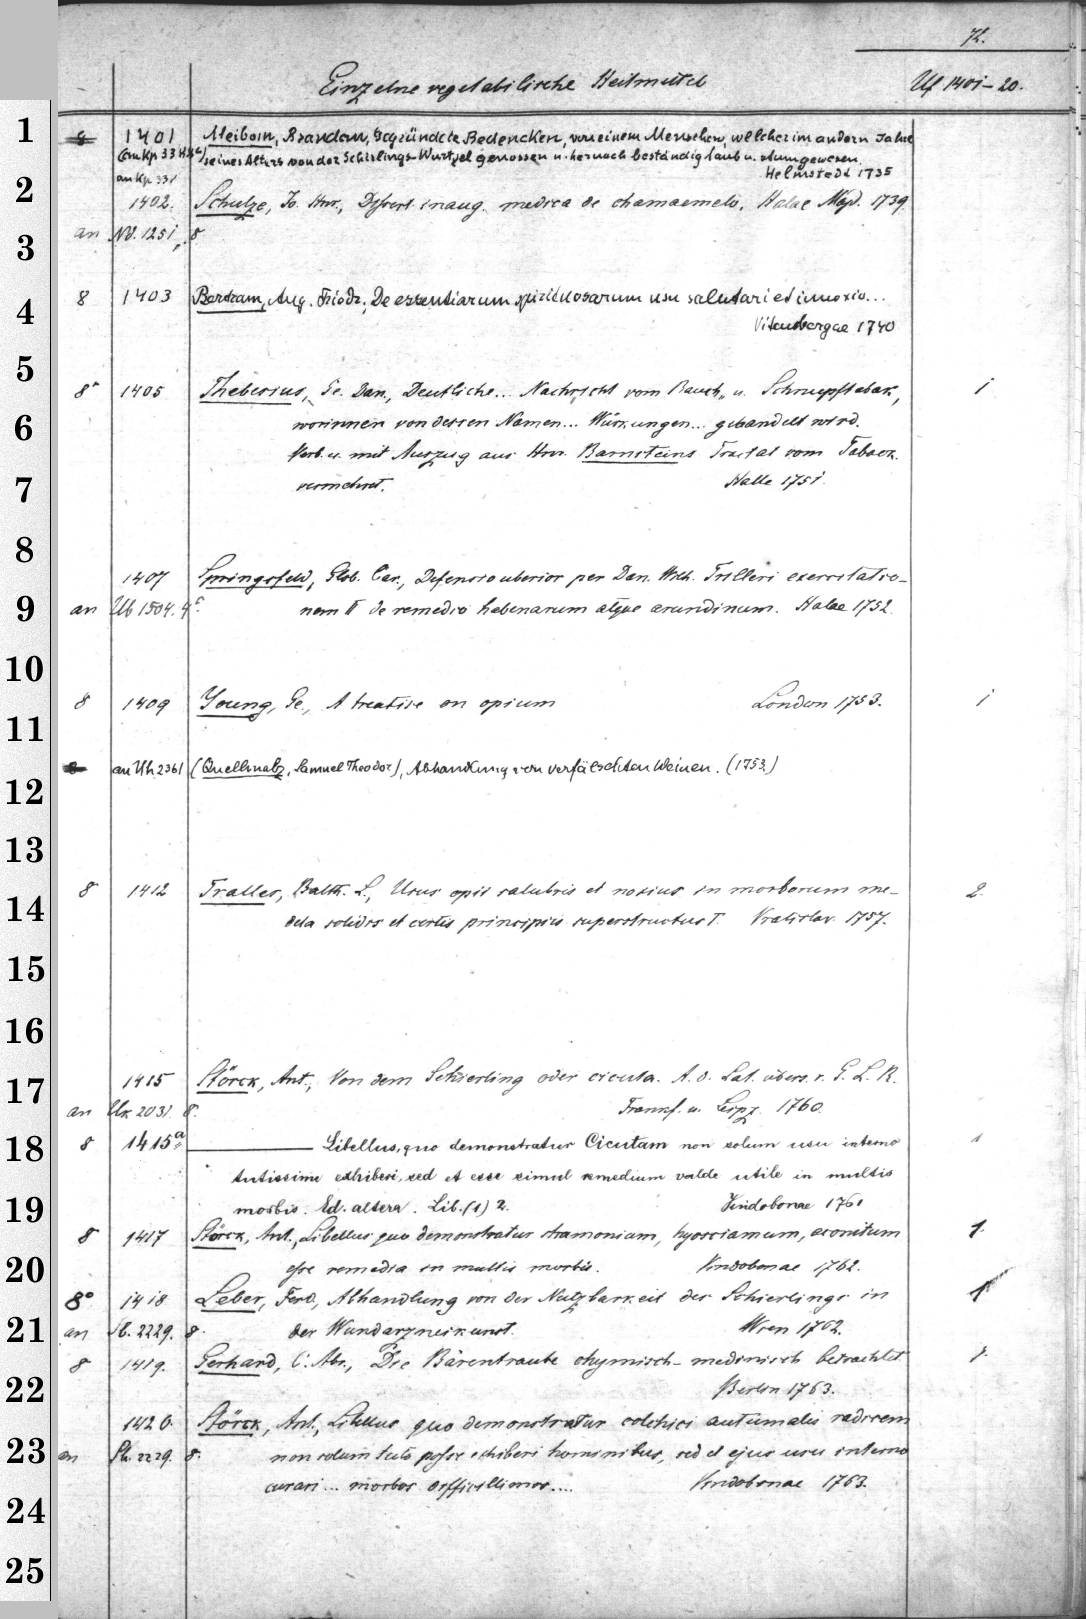 72.
Einzelne vegetabilische Heilmittel Uf 1401–20.
1
8 1401 Meibom, Brandan, Gegründete Bedencken, von einem Menschen, welcher im andern Jahre
seines Alters von der Schirlings-Wurtzel genossen u. hernach beständig taub u. stum gewesen.
an Kp 331 Helmstedt 1735
2
1402. Schulze, Jo. Hnr., Dissert. inaug. medica de chamaemelo. Halae Mgd. 1739.
3
an Nd. 1251, 8
4
8 1403 Bertram, Aug. Friedr., De essentiarum spirituosarum usu salutari et innoxio...
Vitembergae 1740
5
8° 1405 Thebesius, Ge. Dan., Deutliche... Nachricht vom Rauch- u. Schnupftabak, 1
6
worinnen von dessen Namen... Würkungen... gehandelt wird.
Verb. u. mit Auszug aus Hrn. Barnsteins Tractat vom Taback
7
vermehret. Halle 1751.
8
1407 Springsfeld, Gtob. Car., Defensio uberior per Dan. Wilh. Trilleri exercitatio-
9
an Ub 1504. 4° nem II de remedio habenarum atque arundinum. Halae 1752.
10
8 1409 Young, Ge., A treatise on opium London 1753. 1
11
an Uh 2361 (Quellmalz, Samuel Theodor), Abhandlung von verfälschten Weinen. (1753.)
12
13
8 1412 Tralles, Balth. L., Usus opii salubris et noxius in morborum me- 2.
14
dela solidis et certis principiis superstructus T. Vratislav. 1757.
15
16
17
1415 Störck, Ant., Von dem Schierling oder cicuta. A. d. Lat. übers. v. G. L. R.
an Uk 2031. 8. Frankf. u. Leipz. 1760.
18
8 1415a ——— Libellus, quo demonstratur Cicutam non solum usu interno 1
tutissime exhiberi, sed et esse simul remedium valde utile in multis
19
morbis. Ed. altera. Lib. (1) 2. Vindobonae 1761
8 1417 Störck, Ant., Libellus quo demonstratur stramonium, hyosciamum, aconitum 1.
20
esse remedia in multis morbis. Vindobonae 1762.
8° 1418 Leber, Ferd., Abhandlung von der Nutzbarkeit des Schierlings in 1
21
an Sb. 2229. 8. der Wundarzneikunst. Wien 1762.
8 1419. Gerhard, C. Abr., Die Bärentraube chymisch-medicinisch betrachtet 1.
22
Berlin 1763.
1420. Störck, Ant., Libellus quo demonstratur colchici autumalis radicem
23
an Sb. 2229. 8. non solum tuto posse exhiberi hominibus, sed et ejus usu interno
curari... morbos difficillimos.... Vindobonae 1763.
24
25